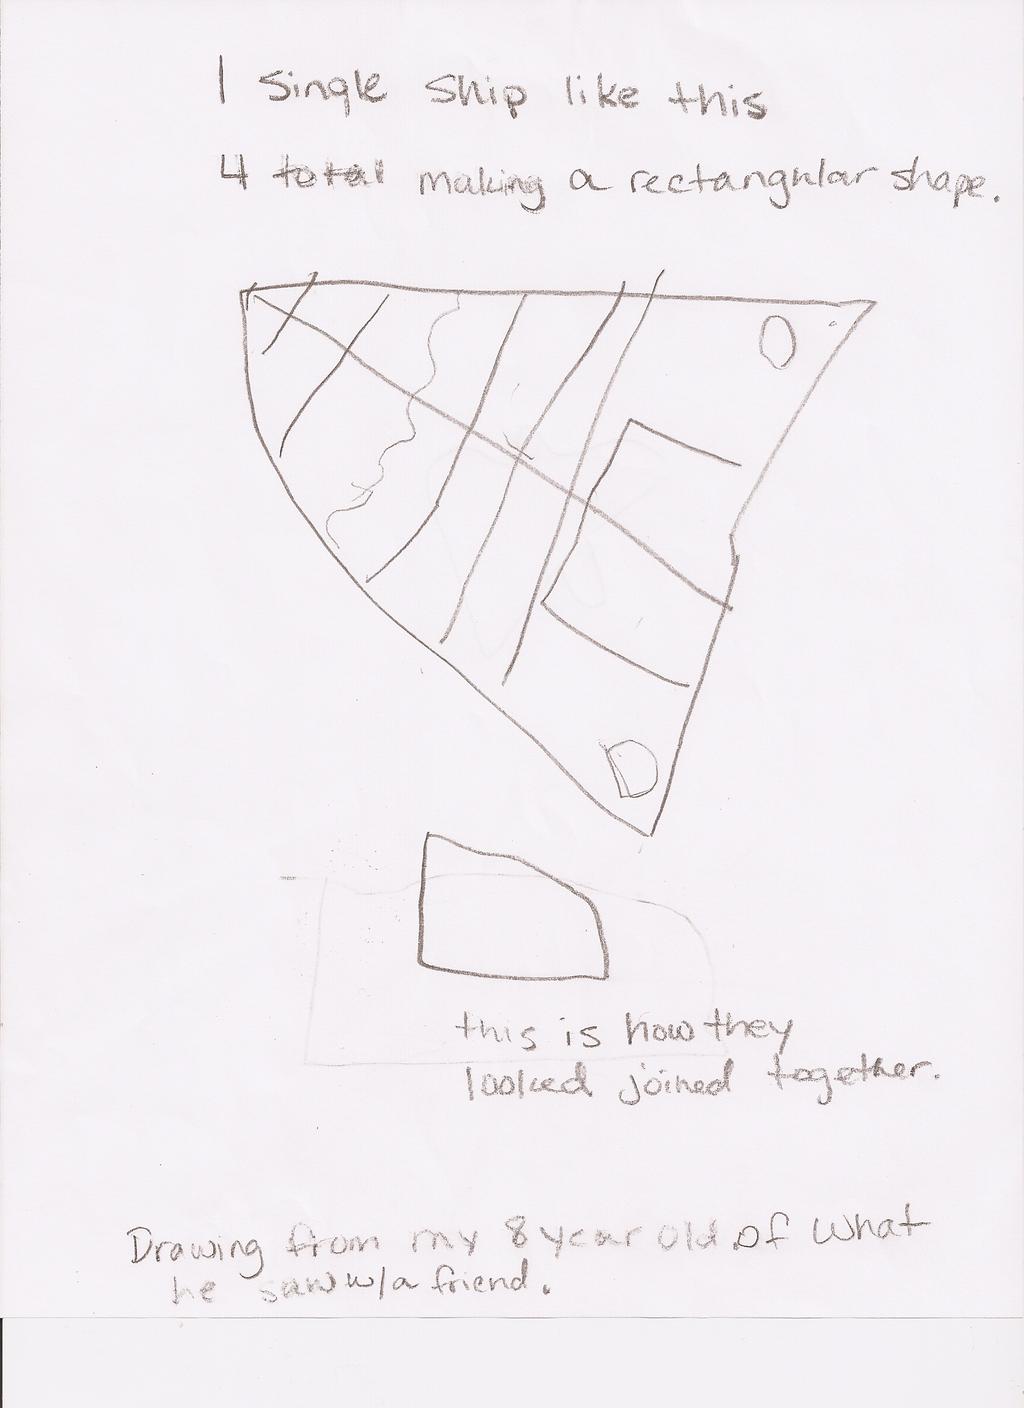 1 Single Ship like this
4 total making a rectangular shape.
this is how they
looked joined together.
Drawing from my 8 year old of what
he saw w/a friend.